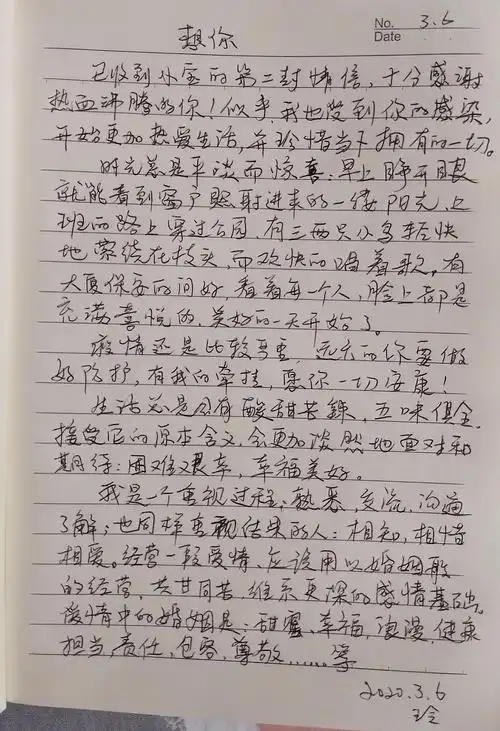 No. 3.6
Date
想你
已收到小宝的第二封情信，十分感谢
热血沸腾的你！似乎，我也受到你的感染，
开始更加热爱生活，并珍惜当下拥有的一切。
时光总是平淡而惊喜：早上睁开眼
就能看到窗户照射进来的一缕阳光，上
班的路上穿过公园，有三两只小鸟轻快
地萦绕在枝头，而欢快的唱着歌。有
大厦保安的问好，看着每一个人，脸上都是
充满喜悦的，美好的一天开始了。
疫情还是比较严重，的你要做
好防护，有我的牵挂，愿你一切安康！
生活总是因有酸甜苦辣，五味俱全，
接受它的原本含义，会更加淡然地面对和
期待：困难艰辛，幸福美好。
我是一个重视过程：熟悉，交流，沟通
了解；也同样重视结果的人：相知，相惜
相爱。经营一段爱情，应该用以婚姻般
的经营，共甘同苦，维系更深的感情基础。
爱情中的婚姻是：甜蜜、幸福，浪漫，健康
担当，责任，包容，尊敬……等
2020.3.6
玲